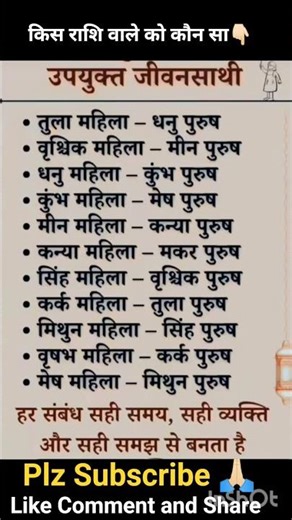 किस राशि वाले को कौन सा👇🏻
उपयुक्त जीवनसाथी
• तुला महिला – धनु पुरुष
• वृश्चिक महिला – मीन पुरुष
• धनु महिला – कुंभ पुरुष
• कुंभ महिला – मेष पुरुष
• मीन महिला – कन्या पुरुष
• कन्या महिला – मकर पुरुष
• सिंह महिला – वृश्चिक पुरुष
• कर्क महिला – तुला पुरुष
• मिथुन महिला – सिंह पुरुष
• वृषभ महिला – कर्क पुरुष
• मेष महिला – मिथुन पुरुष
हर संबंध सही समय, सही व्यक्ति
और सही समझ से बनता है
Plz Subscribe 🙏🏻
InShOt
Like Comment and Share